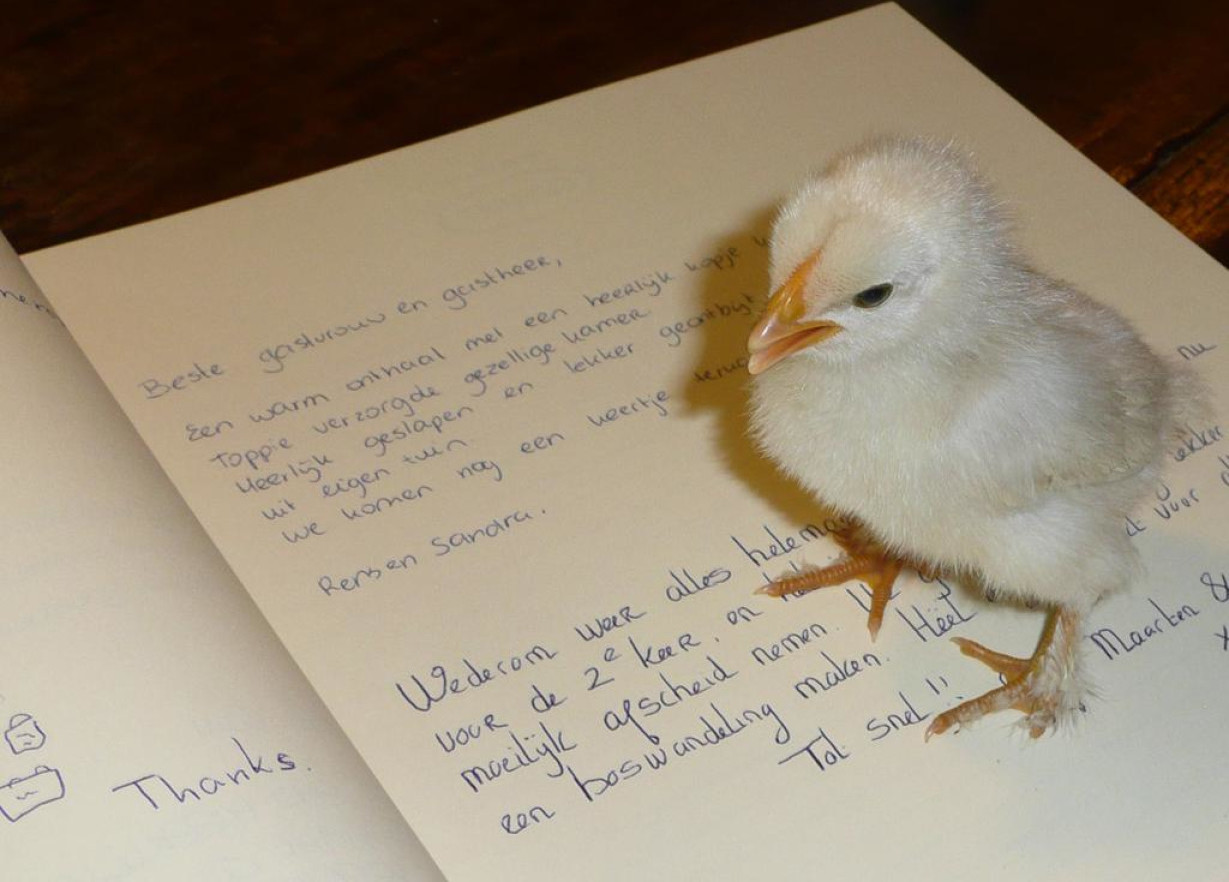 Thanks.
Beste gastvrouw en gastheer,
Een warm onthaal met een heerlijk kopje
Toppie verzorgde gezellige kamer
Heerlijk geslapen en lekker geontbijt
uit eigen tuin.
We komen nog een keertje terug
Sandra.
Wederom weer alles helema
voor de 2e keer, en nu
moeilijk afscheid nemen. We g lekker
een boswandeling maken. Héél voor
Tot snel!! Maarten